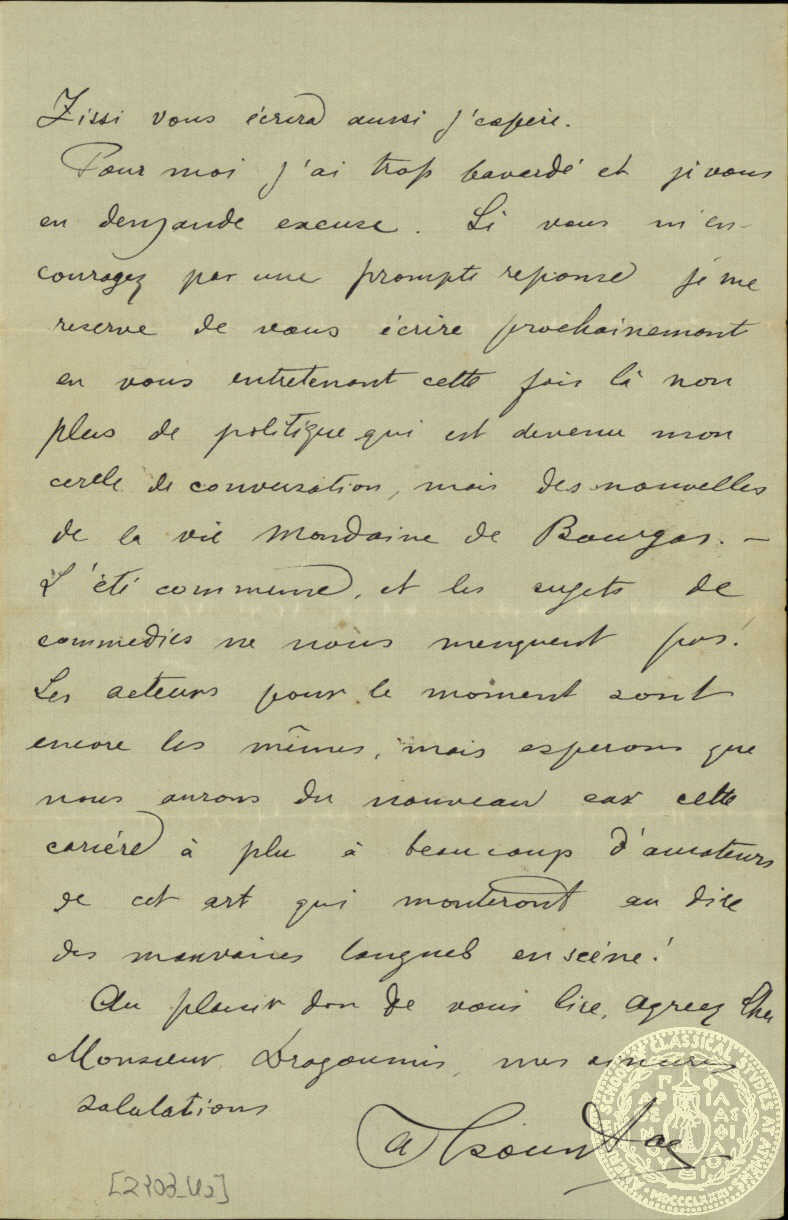 Zissi vous écrira aussi j'espère.
Pour moi j'ai trop bavardé et je vous
en demande excuse. Si vous m'en-
couragez par une prompte reponse je me
reserve de vous écrire prochainement
en vous entretenant cette fois là non
plus de politique qui est devenu mon
cercle de conversation, mais des nouvelles
de la vie mondaine de Bourgas. —
L'été commence, et les sujets de
commedies ne nous menquent pas!
Les acteurs pour le moment sont
encore les mêmes, mais esperons que
nous aurons du nouveau car cette
cariére à plu à beaucoup d'amateurs
de cet art qui monteront au dire
des mauvaises langues en scéne!
Au plaisir don de vous lire, agreez Cher
Monsieur Dragoumis, mes sinceres
salutations
[2403_U2]
AMERICAN SCHOOL OF CLASSICAL STUDIES AT ATHENS
MDCCCLXXXI